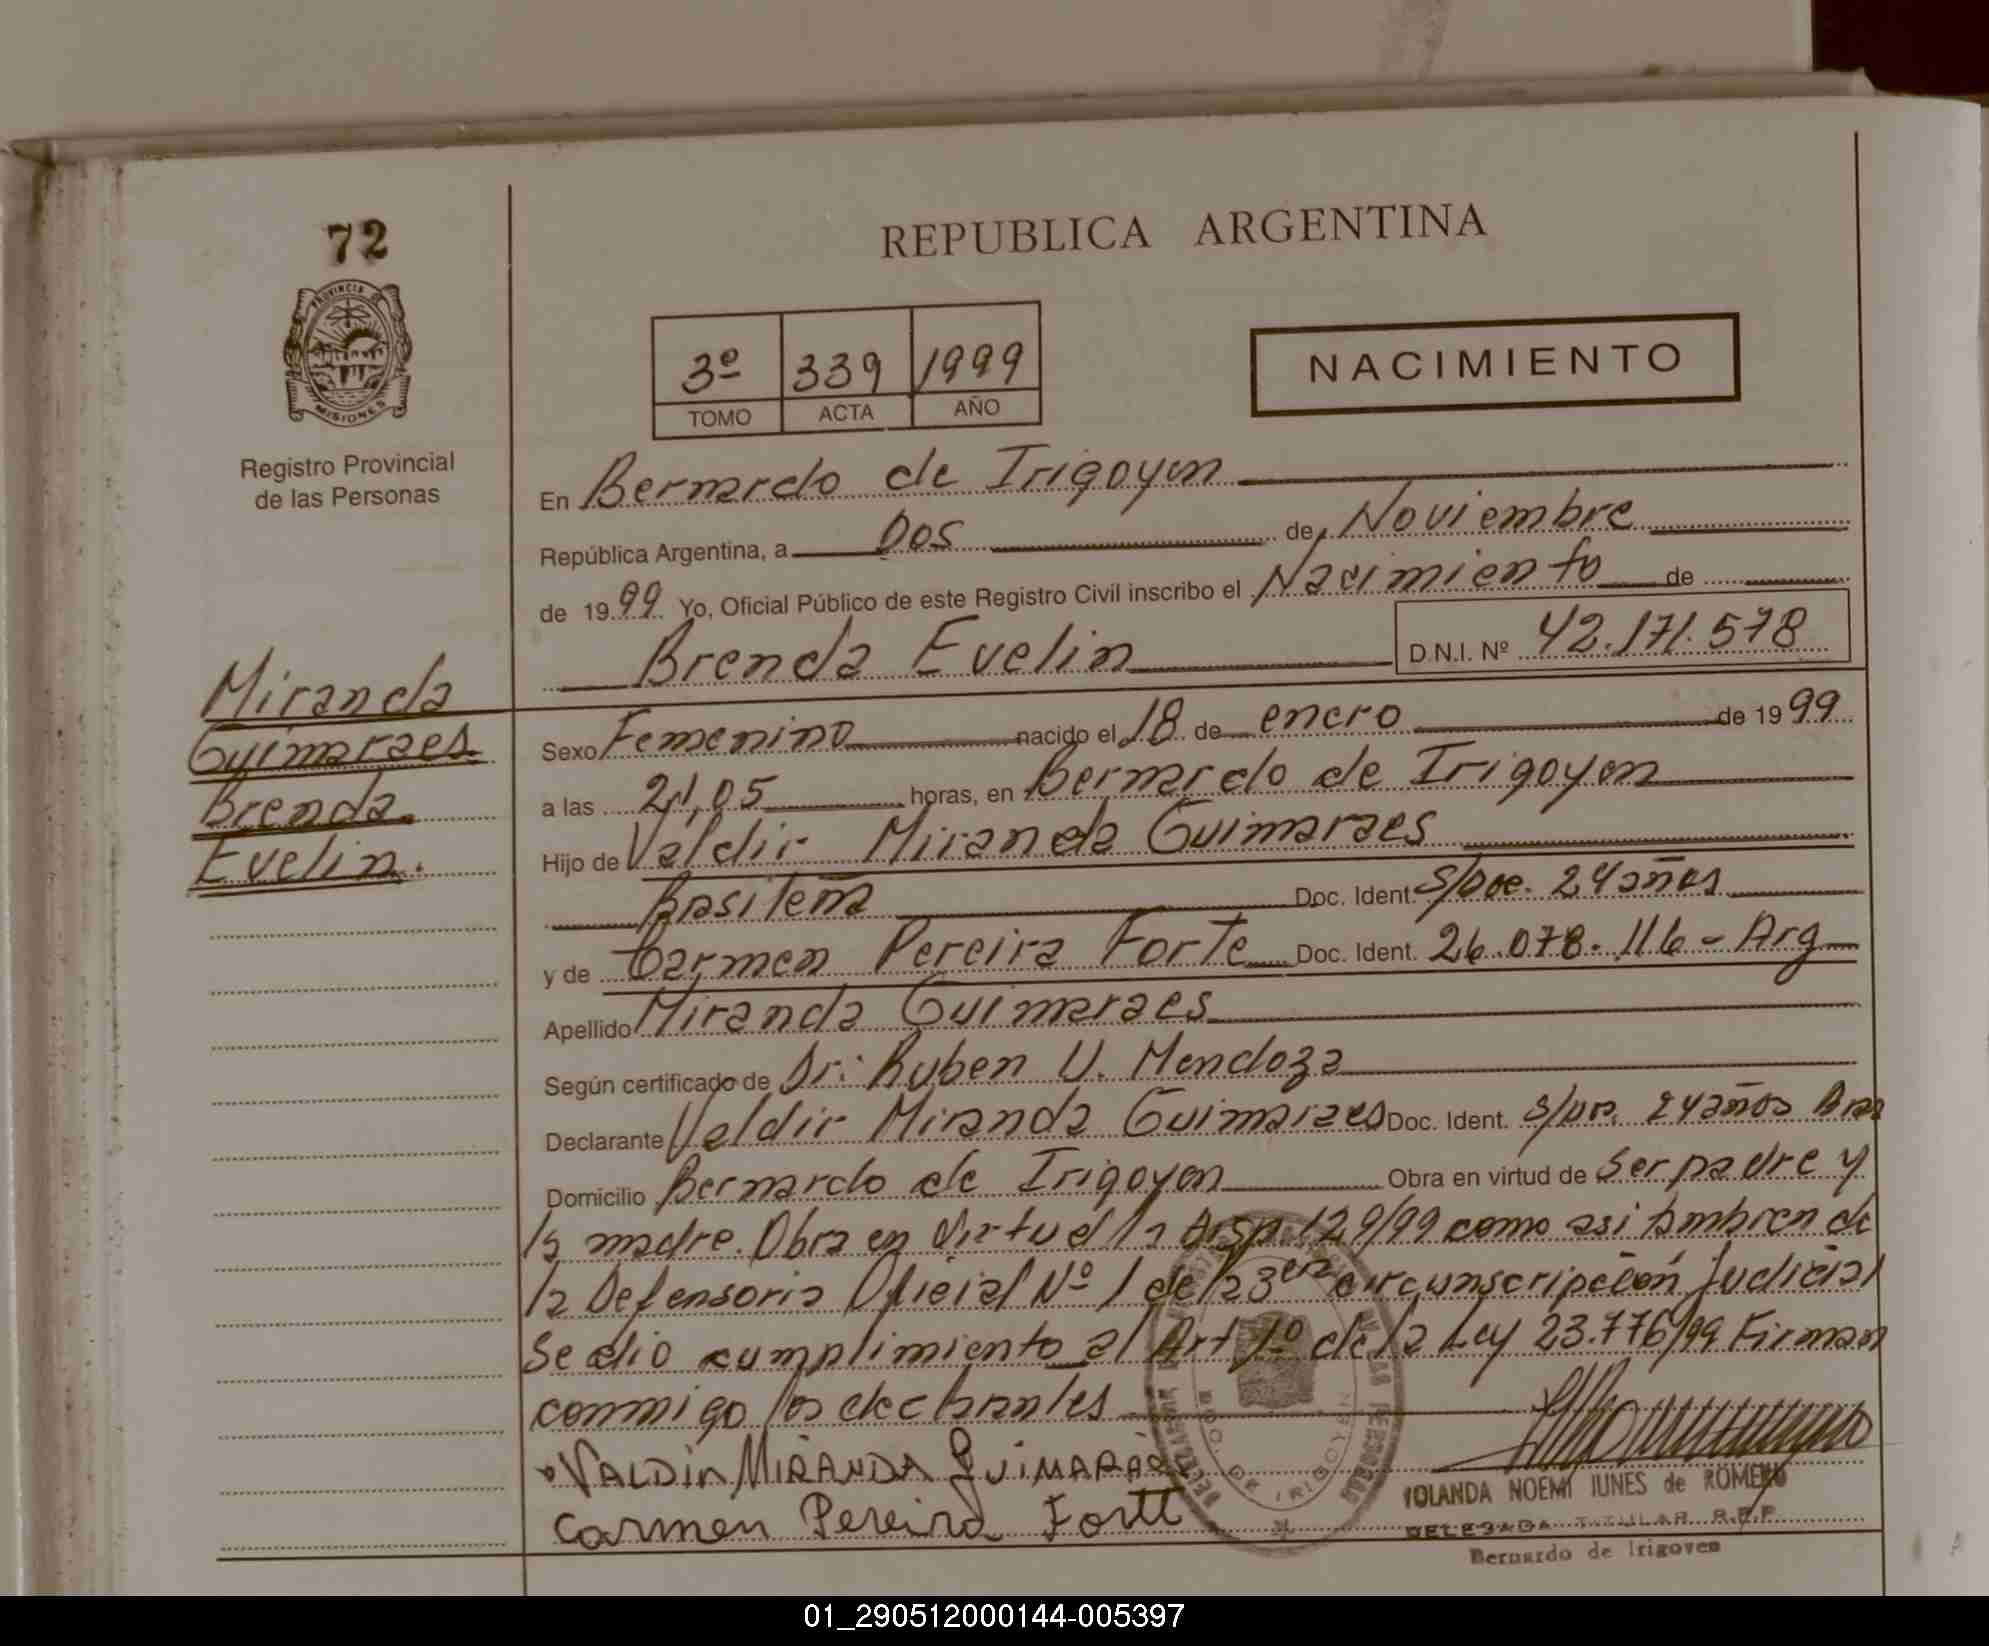 72
REPUBLICA ARGENTINA
PROVINCIA DE
MISIONES
Registro Provincial
de las Personas
3º 339 1999
TOMO ACTA AÑO
NACIMIENTO
En Bernardo de Irigoyen
República Argentina, a Dos de Noviembre
de 1999 Yo, Oficial Público de este Registro Civil inscribo el Nacimiento de
Brenda Evelin D.N.I. Nº 42.171.578
Miranda
Guimaraes
Brenda
Evelin.
Sexo Femenino nacido el 18 de enero de 1999
a las 21,05 horas, en Bernardo de Irigoyen
Hijo de Valdir Miranda Guimaraes
Brasileña Doc. Ident. S/Doc. 24 años
y de Carmen Pereira Forte Doc. Ident. 26.078.116 - Arg
Apellido Miranda Guimaraes
Según certificado de Dr: Ruben U. Mendoza
Declarante Valdir Miranda Guimaraes Doc. Ident. 24 años Bras
Domicilio Bernardo de Irigoyen Obra en virtud de ser padre y
la madre. Obra en virtud la Disp. 129/99 como asi tambien de
la Defensoria Oficial Nº 1 de la 3era circunscripción Judicial
Se dio cumplimiento al Art 1º de la Ley 23.776/99 Firman
conmigo los declarantes
VALDIR MIRANDA GUIMARAES
Carmen Pereira Forte
YOLANDA NOEMI IUNES de ROMERO
DELEGADA TITULAR R.P.P.
Bernardo de Irigoyen
BDO. DE IRIGOYEN
01_290512000144-005397